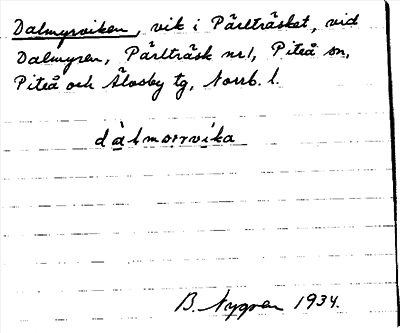 Dalmyrviken, vik i Pärlträsket, vid
Dalmyren, Pärlträsk nr 1, Piteå sn,
Piteå och Älvsby tg, Norrb. l.
dàlmorrvika
B. Nygren 1934.